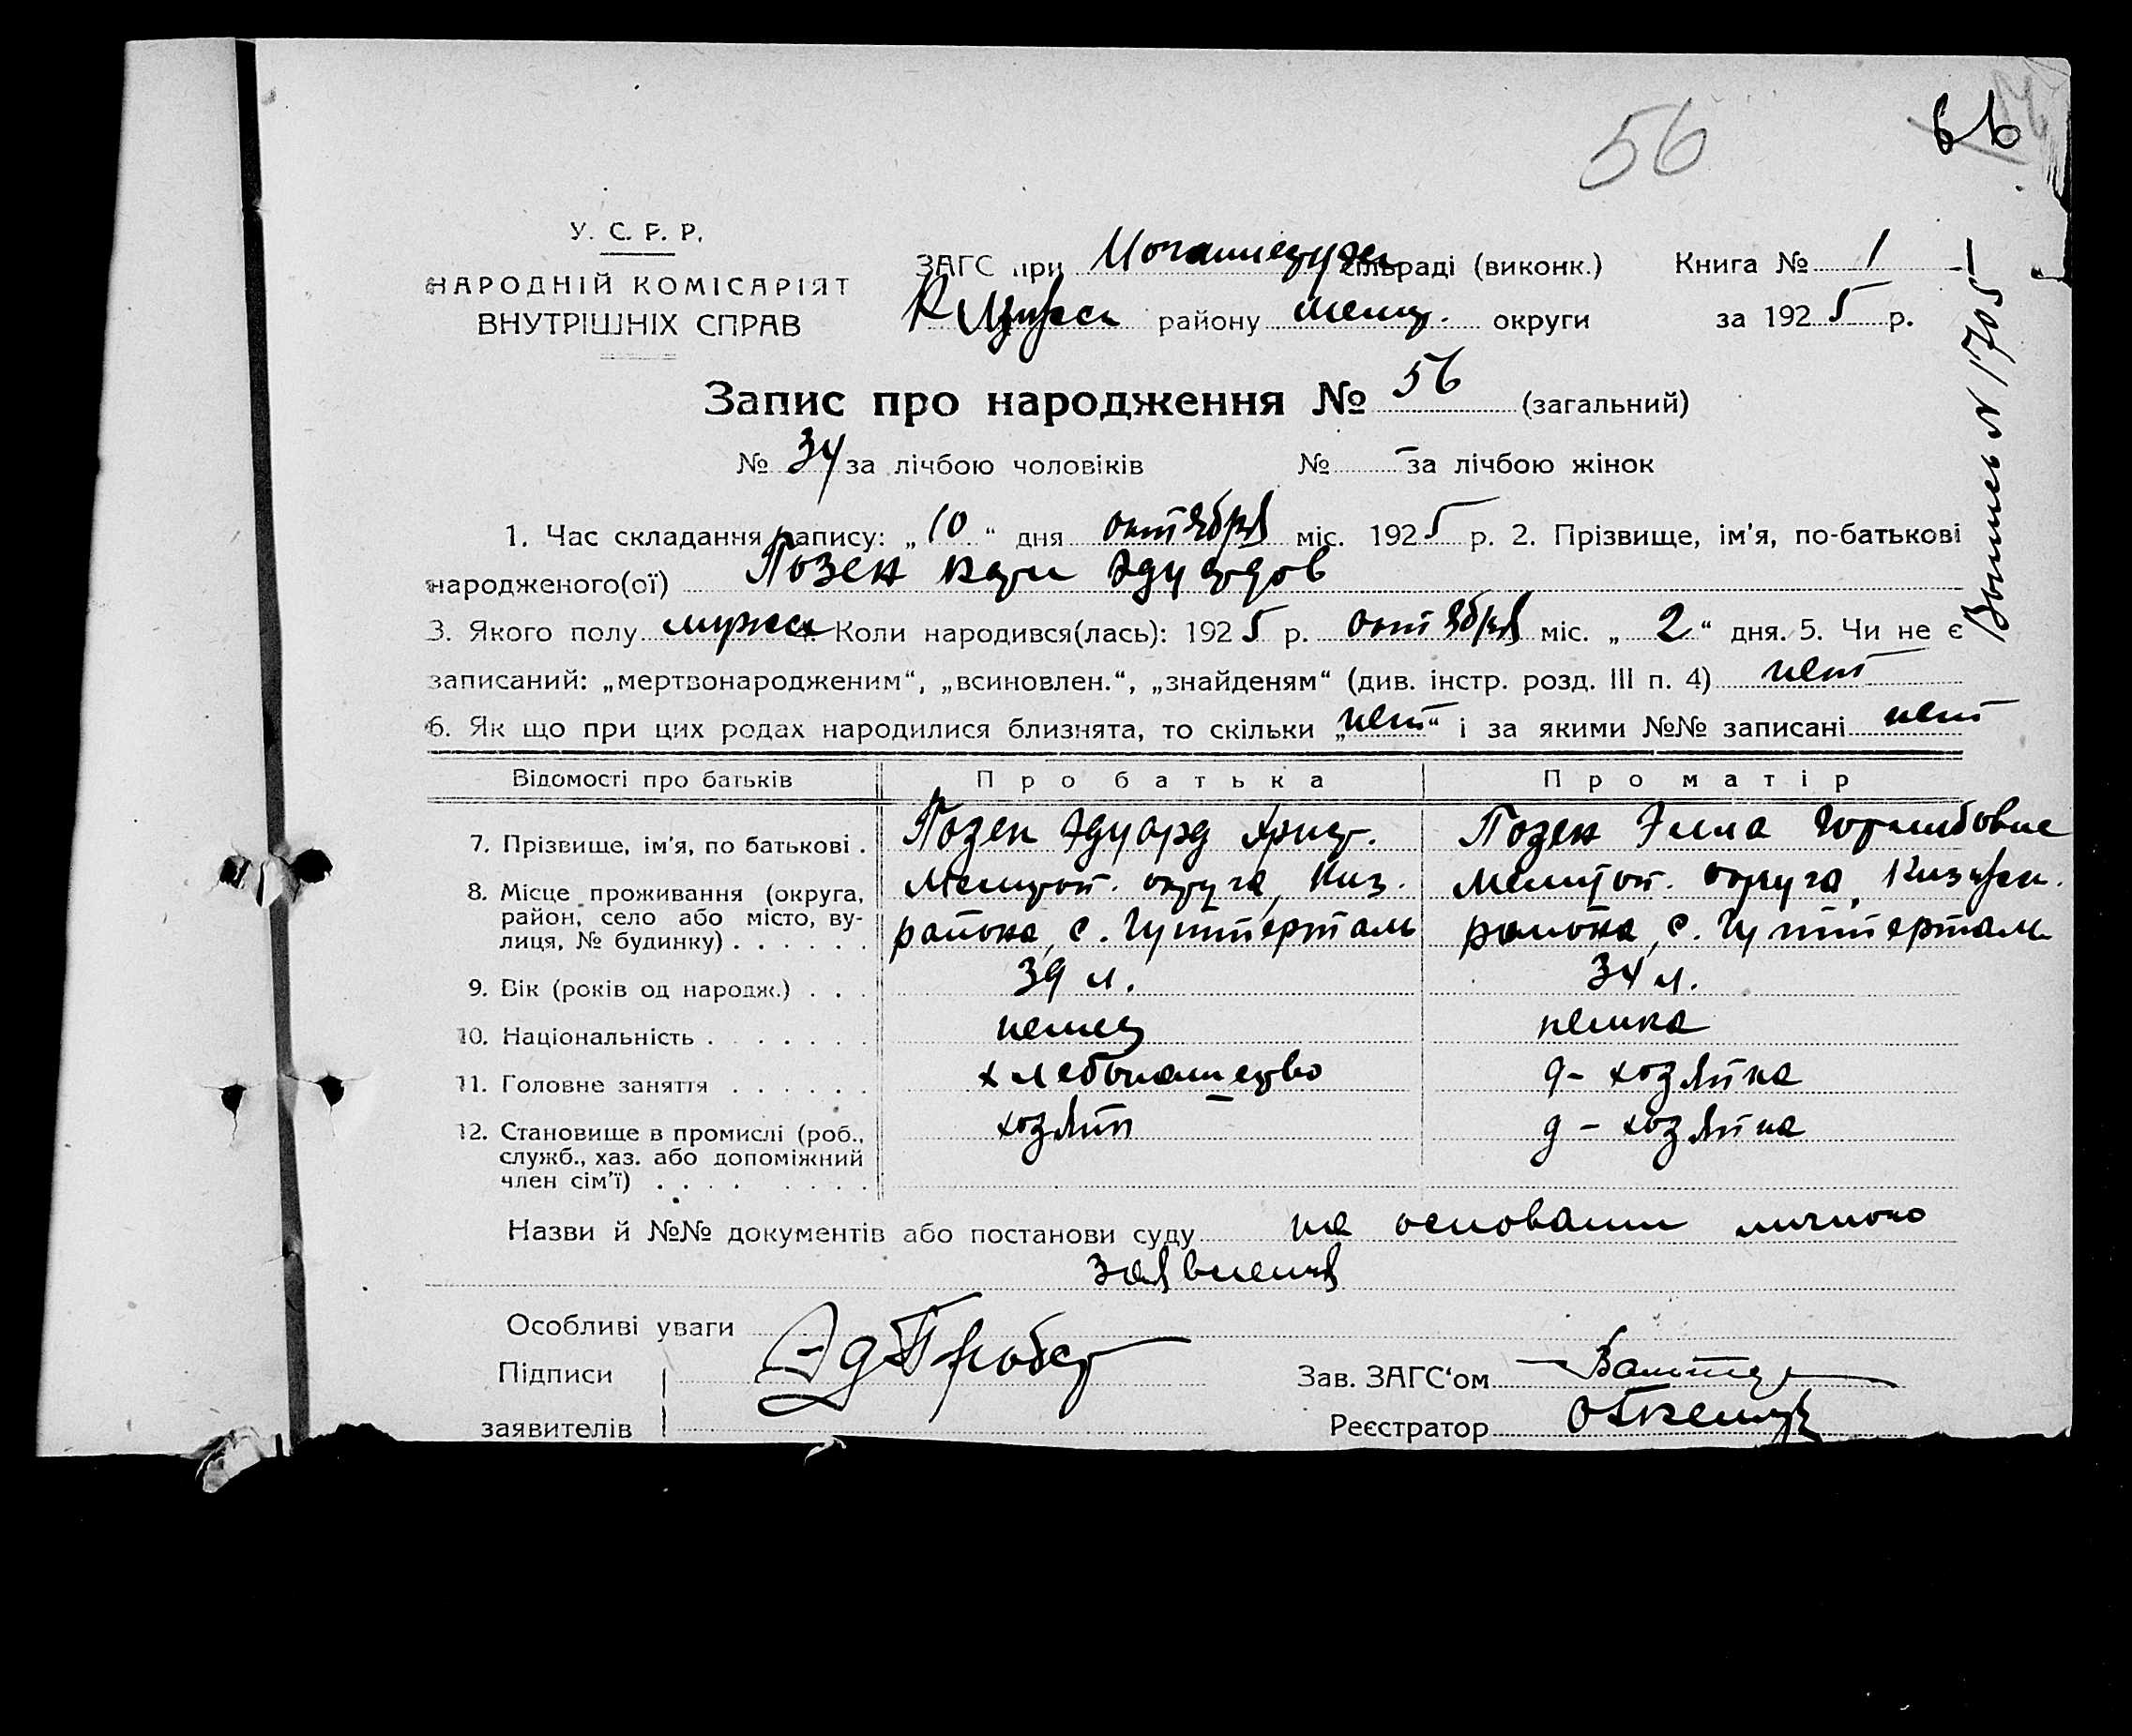 56
У. С. Р. Р.
НАРОДНІЙ КОМІСАРІЯТ
ВНУТРІШНІХ СПРАВ
ЗАГС при сільраді (виконк.) Книга № 1
району округи за 1925 р.
Запис про народження № 56 (загальний)
№ 34 за лічбою чоловіків № — за лічбою жінок
1. Час складання запису: „10“ дня октября міс. 1925 р. 2. Прізвище, ім'я, по-батькові
народженого(ої) Позен Эдуардов
3. Якого полу мужск Коли народився(лась): 1925 р. октября міс. „2“ дня. 5. Чи не є
записаний: „мертвонародженим“, „всиновлен.“, „знайденям“ (див. інстр. розд. III п. 4) нет
6. Як що при цих родах народилися близнята, то скільки „нет“ і за якими №№ записані нет
Відомості про батьків Про батька Про матір
7. Прізвище, ім'я, по батькові . Позен Эдуард Христ. Позен Эмма
8. Місце проживання (округа, Мелитоп. округа, Киз. Мелитоп. округа,
район, село або місто, ву- района, с. Гуттерталь района, с. Гуттерталь
лиця, № будинку) . . . . . .
9. Вік (років од народж.) . . . 39 л. 34 л.
10. Національність . . . . . . . немец немка
11. Головне заняття . . . . . . хлебопашество д-хозяйка
12. Становище в промислі (роб., хозяин д-хозяйка
служб., хаз. або допоміжний
член сім'ї) . . . . . . . .
Назви й №№ документів або постанови суду на основании личного
заявления
Особливі уваги
Підписи Зав. ЗАГС'ом
заявителів Реєстратор
N 1705